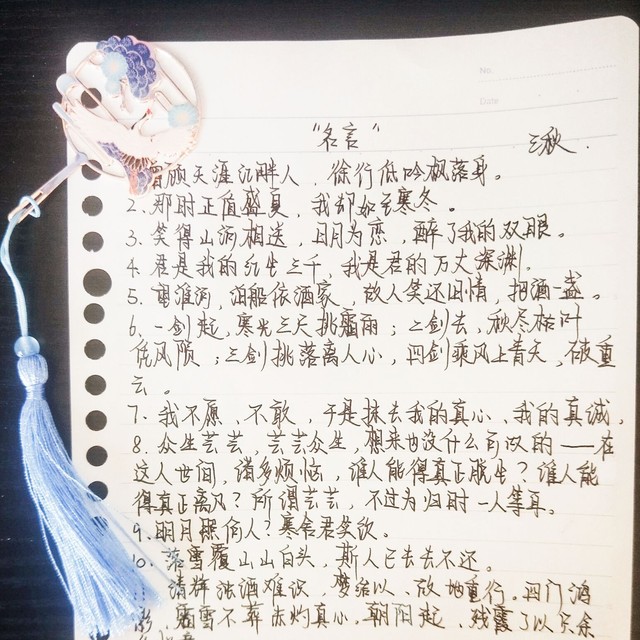 No.
Date
"名言" 三秋.
曾顾天涯江畔人，徐行低吟枫落身。
2. 那时正值盛夏，我却如至寒冬。
3. 笑得山河相送，日月为恋，醉了我的双眼。
4. 君是我的红尘三千，我是君的万丈深渊。
5. 雪淮河，泊船依酒家，故人笑还旧情，把酒一盏。
6. 一剑起，寒光三天挑霜雨；二剑去，秋尽梧叶
低风陨；三剑挑落离人心，四剑乘风上青天，破重
云。
7. 我不愿、不敢，于是抹去我的真心、我的真诚。
8. 众生芸芸，芸芸众生，想来也没什么可以的——在
这人世间，诸多烦恼，谁人能得真正脱生？谁人能
得真正离凡？所谓芸芸，不过为归时一人等耳。
9. 明月照何人？寒舍君笑饮。
10. 落雪覆山山白头，斯人已去去不还。
清辉浊酒难识，梦绘以、故地重行。四门海
霜雪不葬赤灼真心。朝阳起、残霞了以下余